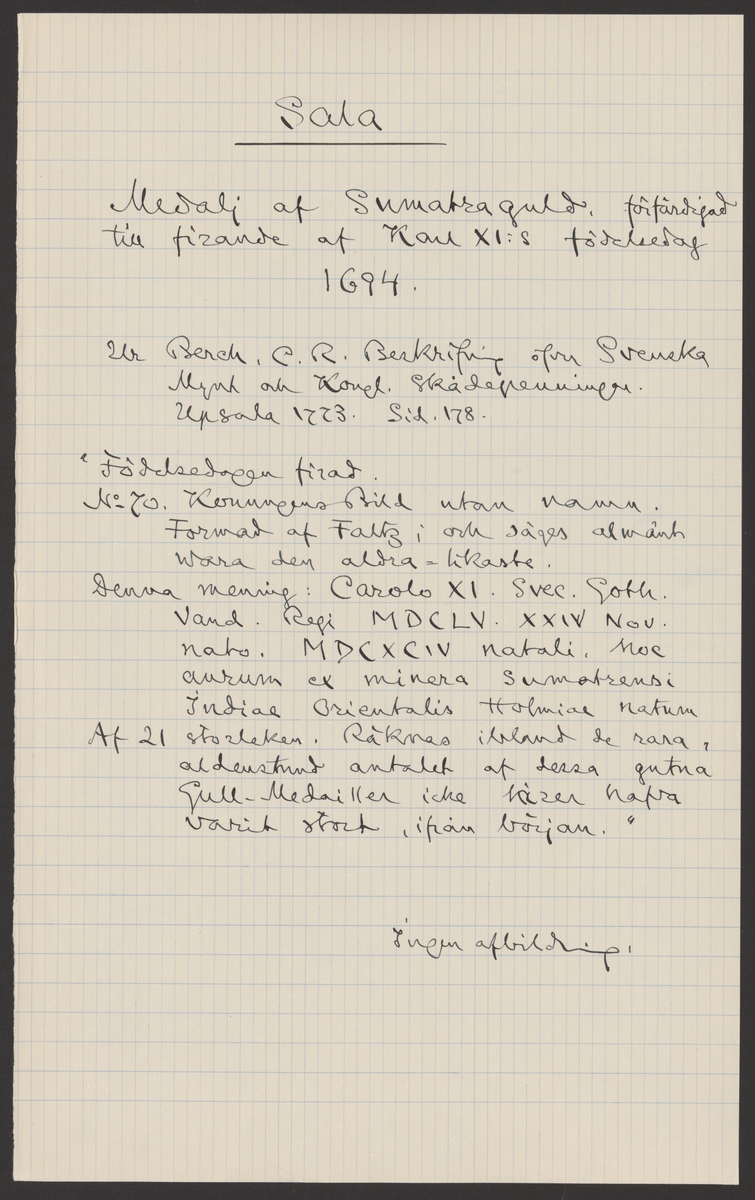 Sala
Medalj af Sumatraguld, förfärdigad
till firande af Karl XI:s födelsedag
1694.
Ur Berch, C. R. Beskrifning öfver Svenska
Mynt och Kongl. Skådepenningar.
Upsala 1773. Sid. 178.
"Födelsedagen firad.
No 70. Konungens Bild utan namn.
Formad af Faltz; och säges almänt
wara den aldra=likaste.
Denna mening: Carolo XI. Svec. Goth.
Vand. Regi MDCLV. XXIV Nov.
nato. MDCXCIV natali, hoc
aurum ex minera Sumatrensi
Indiae Orientalis Holmiae natum
Af 21 storleken. Räknas ibland de rara,
aldenstund antalet af dessa gutna
Gull-Medailler icke lärer hafva
varit stort, ifrån början."
Ingen afbildning.